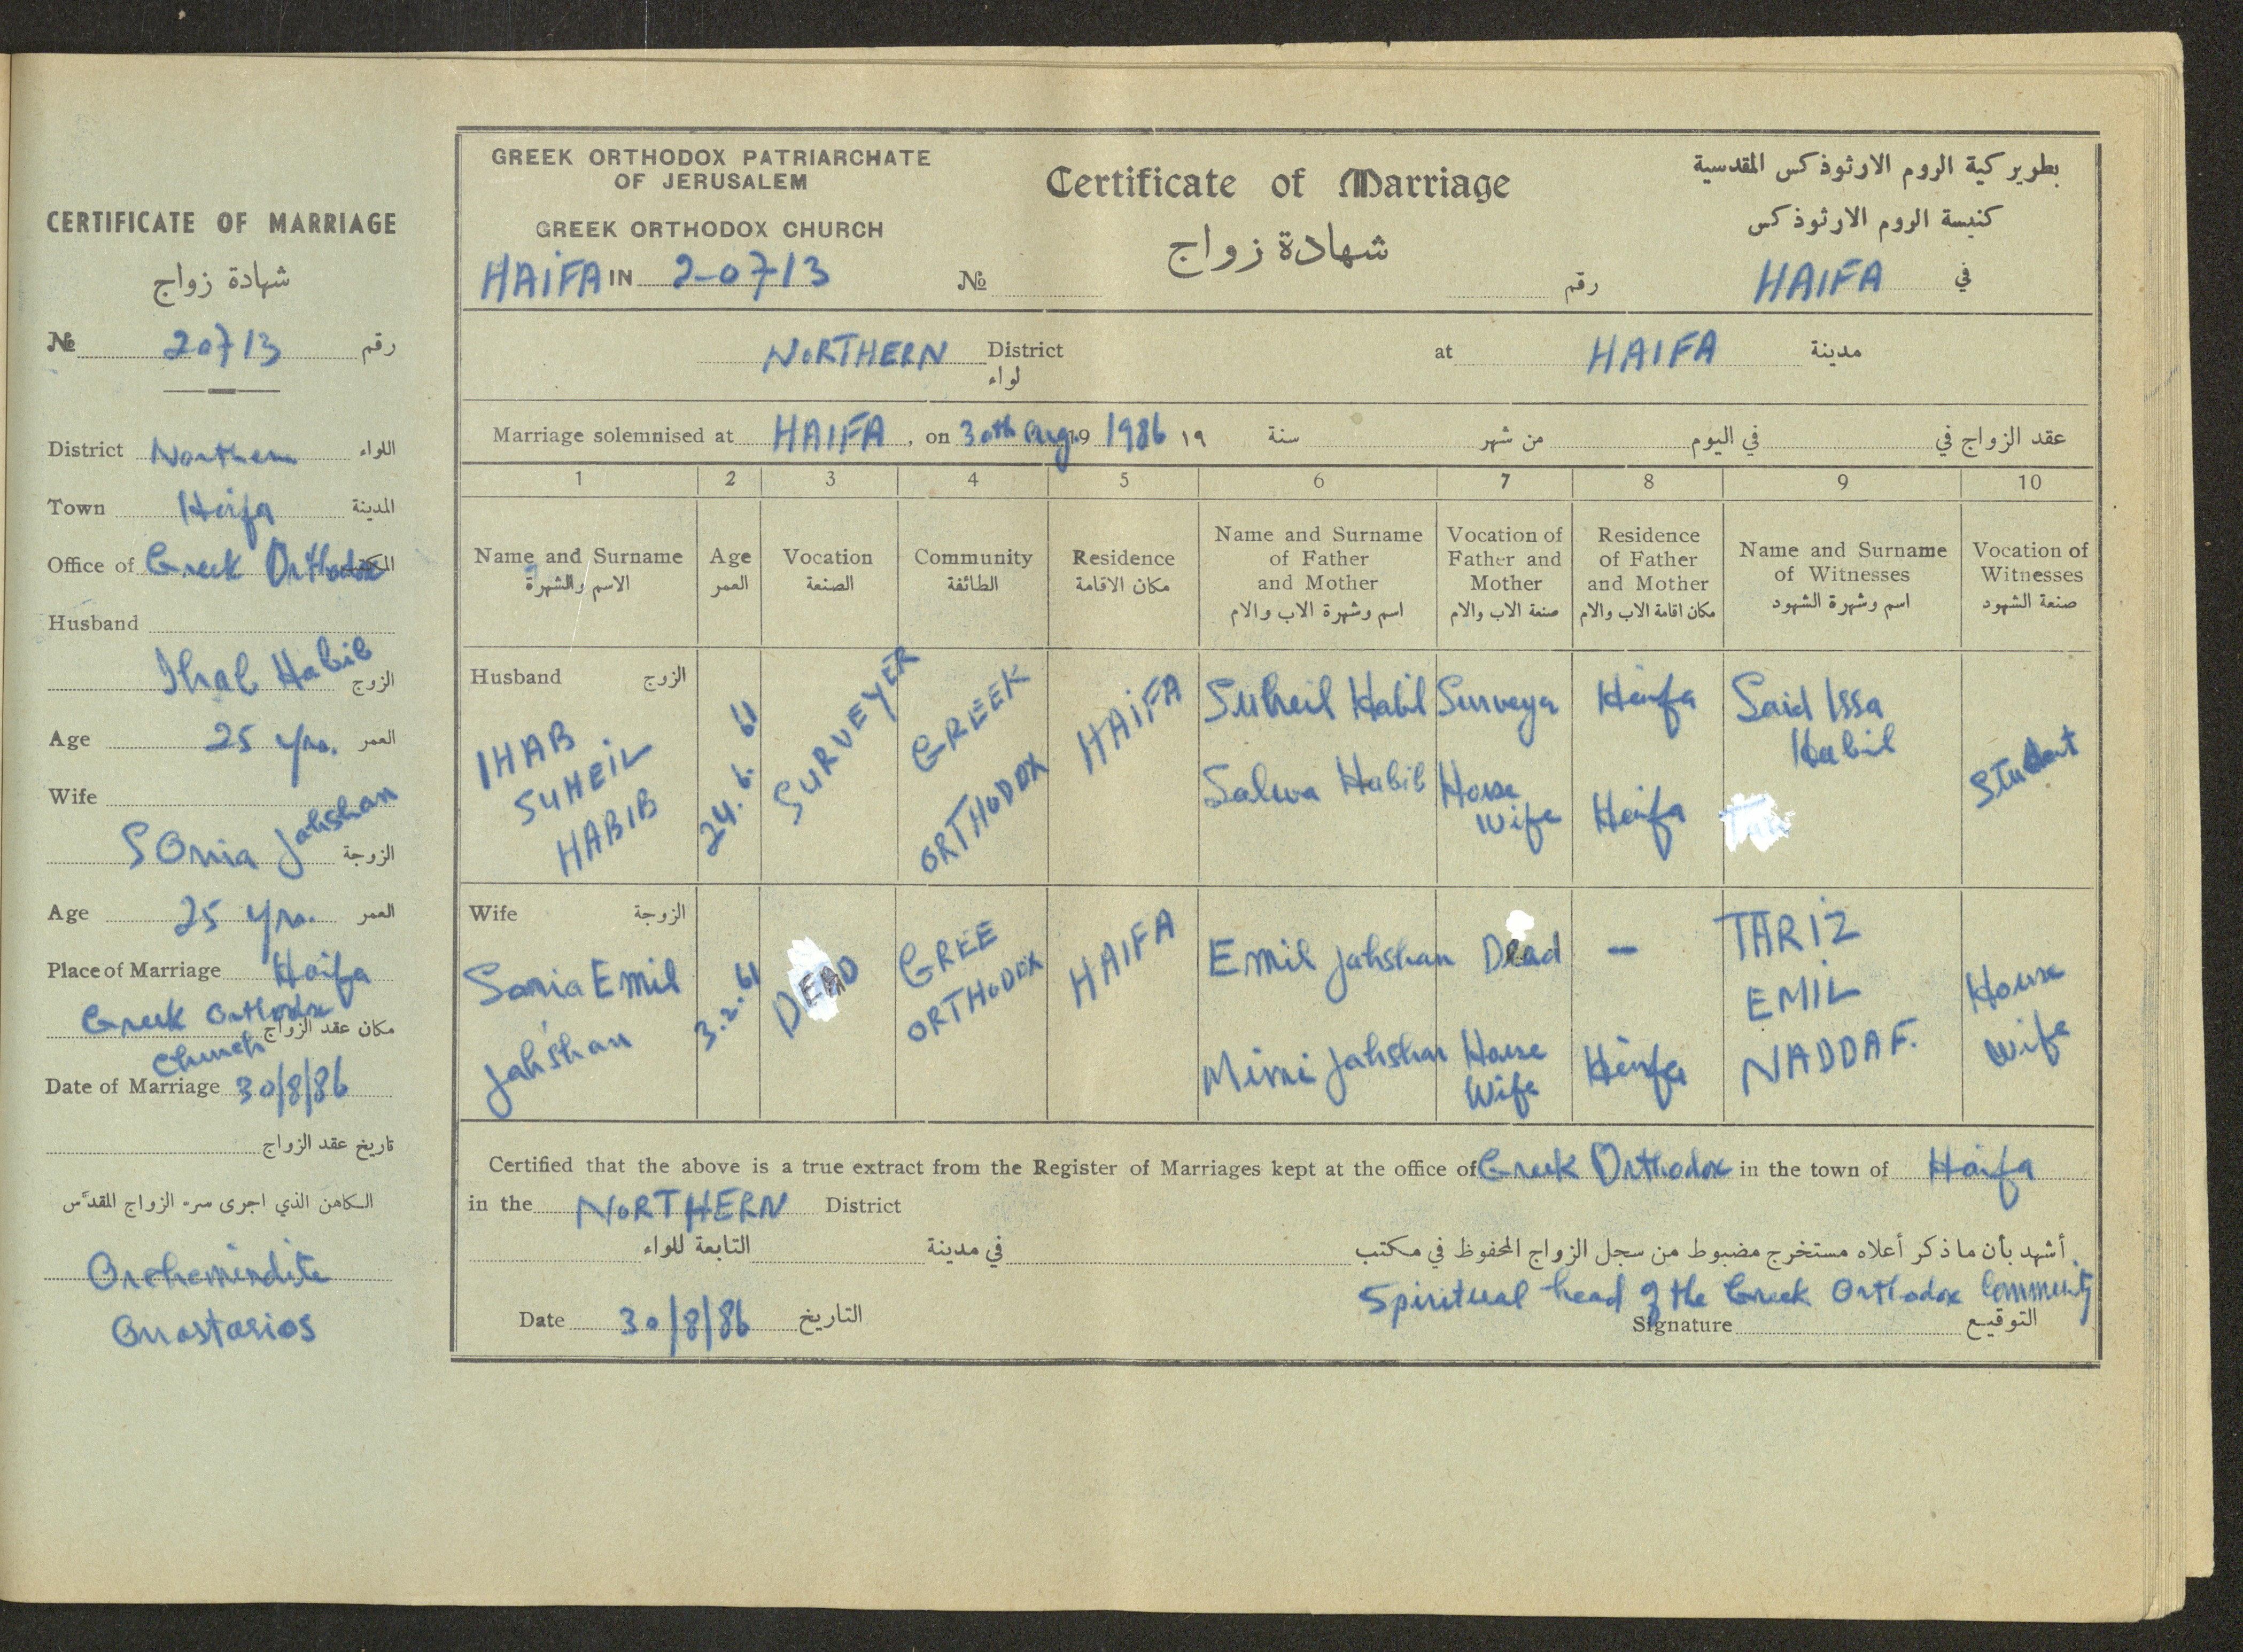 CERTIFICATE OF MARRIAGE
شهادة زواج
№ 20713 رقم
District Northern اللواء
Town Haifa المدينة
Office of Greek Orthodox المكتب
Husband
Ihab Habib الزوج
Age 25 yrs. العمر
Wife
SOnia Jahshan الزوجة
Age 25 yrs. العمر
Place of Marriage Haifa
Greek Orthodox مكان عقد الزواج
Church
Date of Marriage 30/8/86
تاريخ عقد الزواج
الكاهن الذي اجرى سر الزواج المقدس
Anastasios
GREEK ORTHODOX PATRIARCHATE
OF JERUSALEM
GREEK ORTHODOX CHURCH
HAIFA IN 20713
Certificate of Marriage
شهادة زواج
№ رقم
بطوير كية الروم الارثوذكس المقدسية
كنيسة الروم الارثوذكس
في HAIFA
NORTHERN District at HAIFA مدينة
لواء
Marriage solemnised at HAIFA, on 30th Aug. 19 1986 ١٩ سنة من شهر في اليوم عقد الزواج في
1 2 3 4 5 6 7 8 9 10
Name and Surname
الاسم والشهرة
Age
العمر
Vocation
الصنعة
Community
الطائفة
Residence
مكان الاقامة
Name and Surname
of Father
and Mother
اسم وشهرة الاب والام
Vocation of
Father and
Mother
صنعة الاب والام
Residence
of Father
and Mother
مكان اقامة الاب والام
Name and Surname
of Witnesses
اسم وشهرة الشهود
Vocation of
Witnesses
صنعة الشهود
Husband الزوج
IHAB
SUHEIL
HABIB
24.6.61
SURVEYER
GREEK
ORTHODOX
HAIFA
Suheil Habib
Salwa Habib
Surveyer
House
wife
Haifa
Haifa
Said Issa
Habib
Student
Wife الزوجة
Sonia Emil
Jahshan
3.2.61
DEAD
GREE
ORTHODOX
HAIFA
Emil Jahshan
Mimi Jahshan
Dead
House
Wife
-
Haifa
TARIZ
EMIL
NADDAF.
House
wife
Certified that the above is a true extract from the Register of Marriages kept at the office of Greek Orthodox in the town of Haifa
in the NORTHERN District
أشهد بأن ما ذكر أعلاه مستخرج مضبوط من سجل الزواج المحفوظ في مكتب في مدينة التابعة للواء
Spiritual head of the Greek Orthodox Community
Date 30/8/86 التاريخ
Signature التوقيع